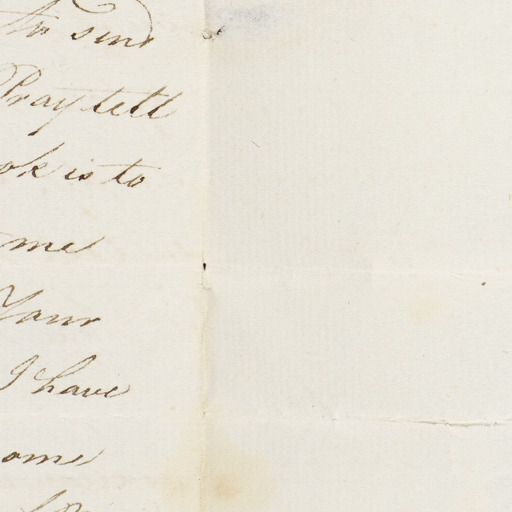 to send
Pray tell
ok is to
me
Your
I have
ome